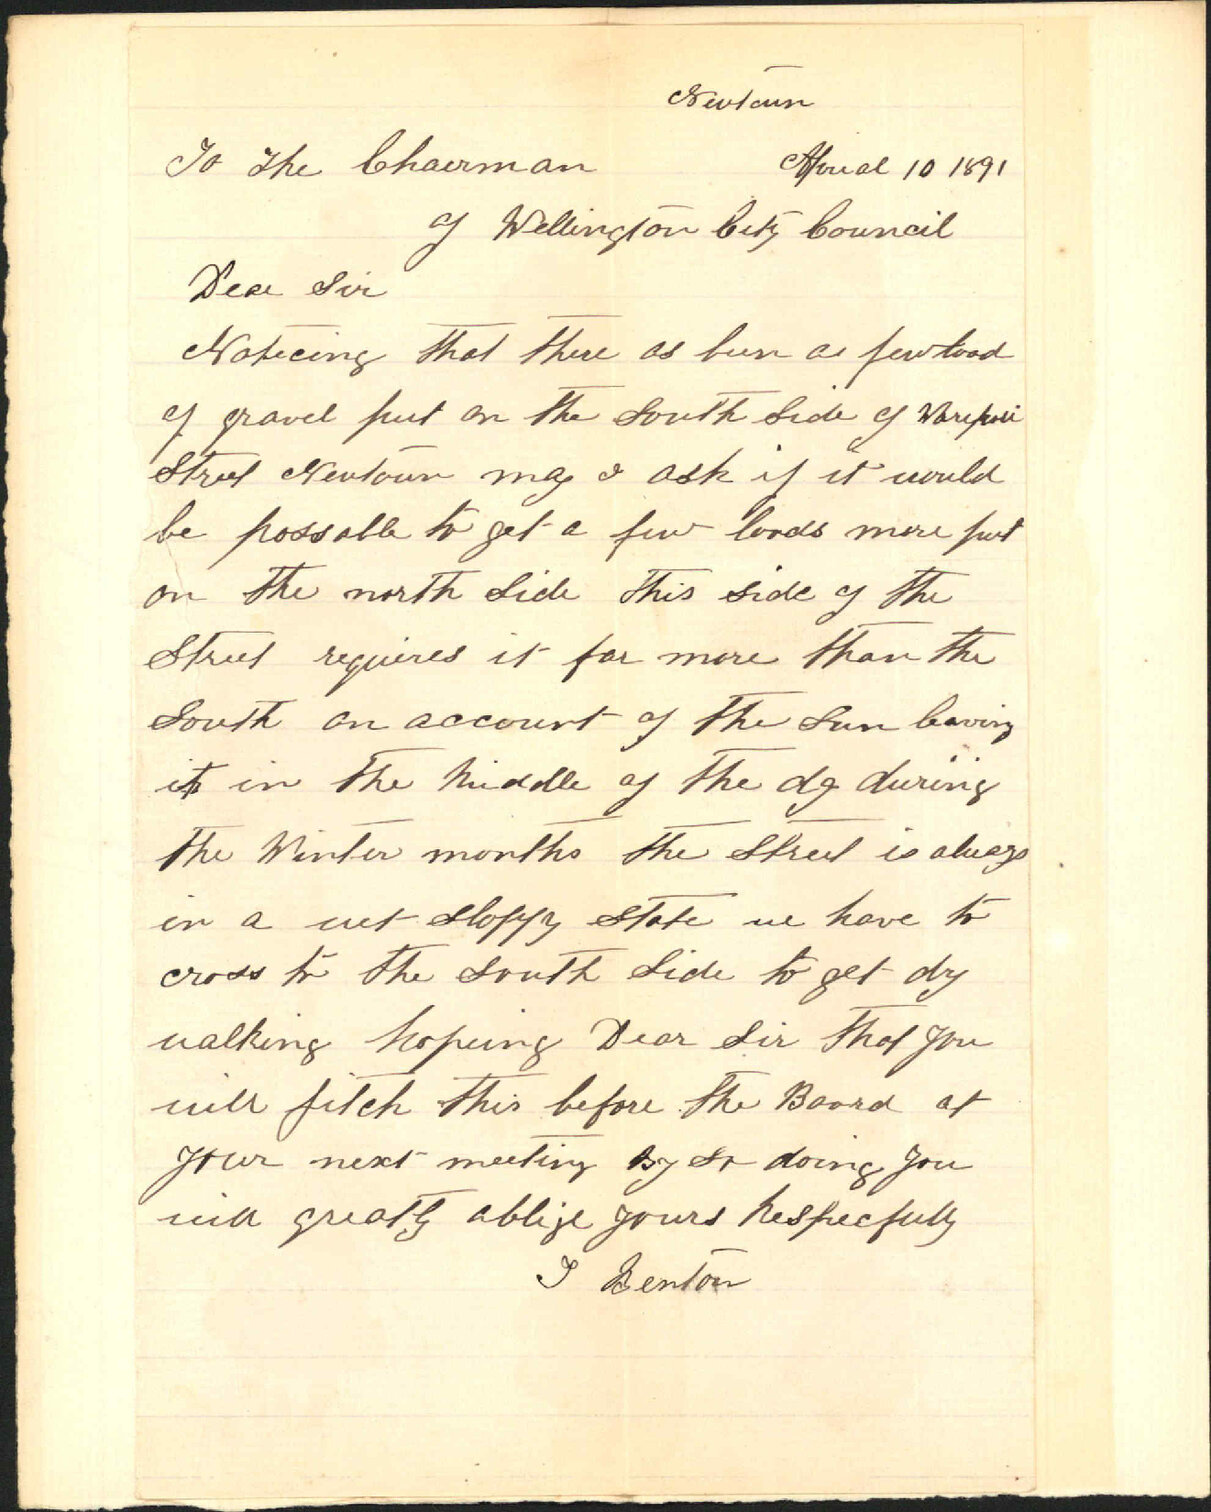 Newtown
To The Chaerman April 10 1891
of Wellington City Council
Dear Sir
Noticing that there as been a few load
of gravel put on the South Side of Waripori
Street Newtown may I ask if it would
be possable to get a few loads more put
on the north Side this side of the
Street requieres it far more than the
South on account of the Sun leaving
it in the Middle of the day during
the Winter months the Street is always
in a wet Sloppy State we have to
cross to the South Side to get dry
walking hopeing Dear Sir that you
will fitch this before the Board at
your next meeting By So doing you
will greatly oblige yours Respecfully